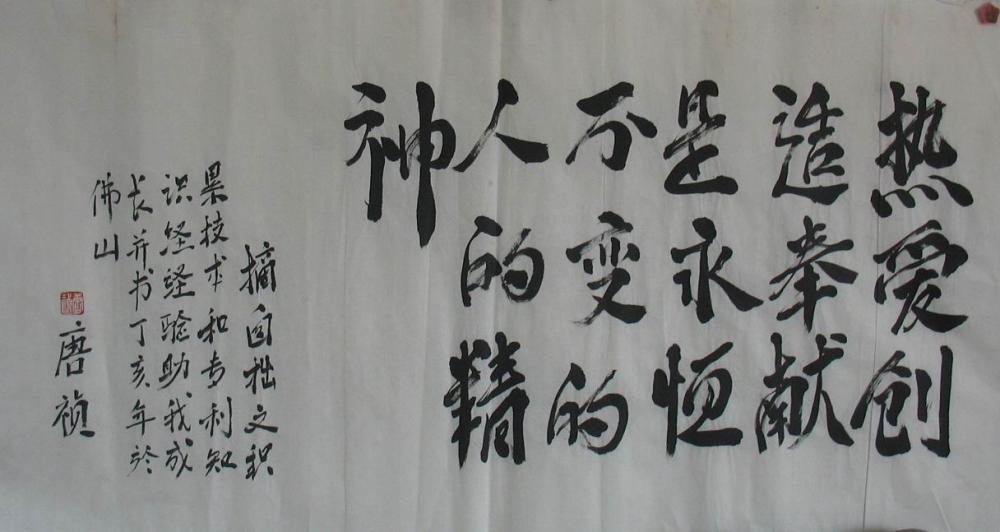 热爱创
造奉献
是永恒
不变的
人的精
神
摘自拙文积
累技术和专利知
识经经验助我成
长并书丁亥年於
佛山
唐祯